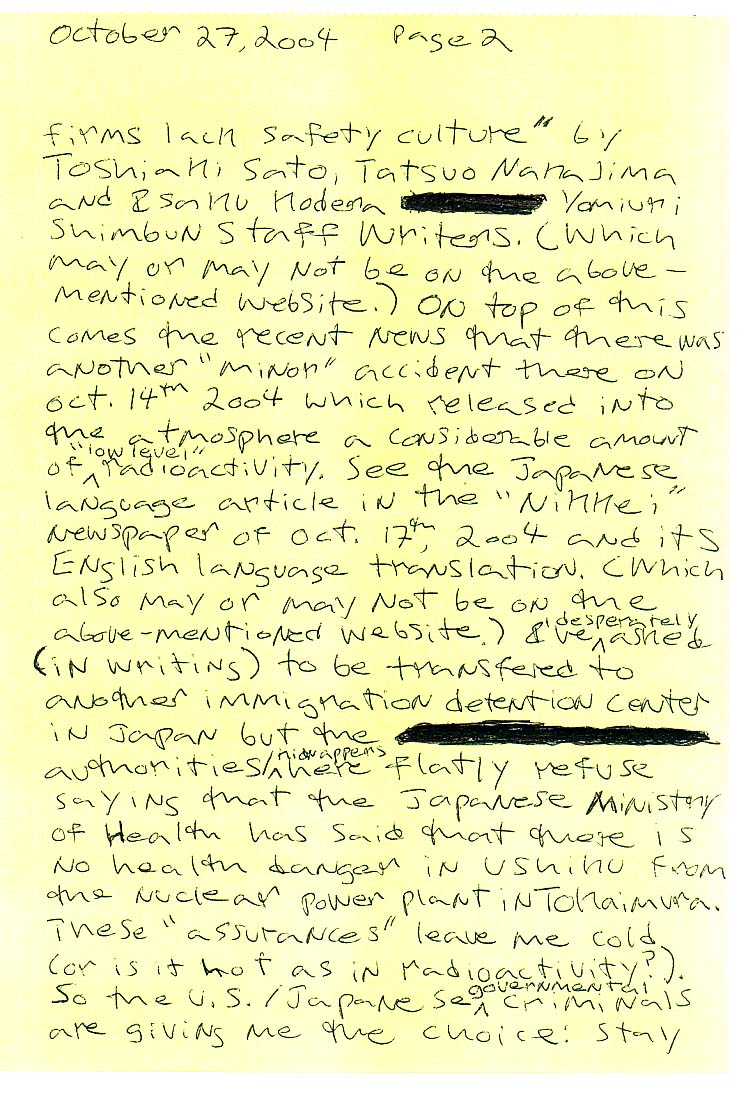 October 27, 2004 Page 2
firms lack safety culture" by
Toshiaki Sato, Tatsuo Nakajima
and Isaku Kodera Yomiuri
Shimbun Staff Writers. (Which
may or may not be on the above-
mentioned website.) On top of this
comes the recent news that there was
another "minor" accident there on
Oct. 14th 2004 which released into
the atmosphere a considerable amount
of "low level" radioactivity. See the Japanese
language article in the "Nikkei"
newspaper of Oct. 17th, 2004 and its
English language translation. (Which
also may or may not be on the
above-mentioned website.) I've desperately asked
(in writing) to be transfered to
another immigration detention center
in Japan but the
authorities/kidnappers here flatly refuse
saying that the Japanese Ministry
of Health has said that there is
no health danger in Ushiku from
the nuclear power plant in Tokaimura.
These "assurances" leave me cold
(or is it hot as in radioactivity?).
So the U.S./Japanese governmental criminals
are giving me the choice: stay